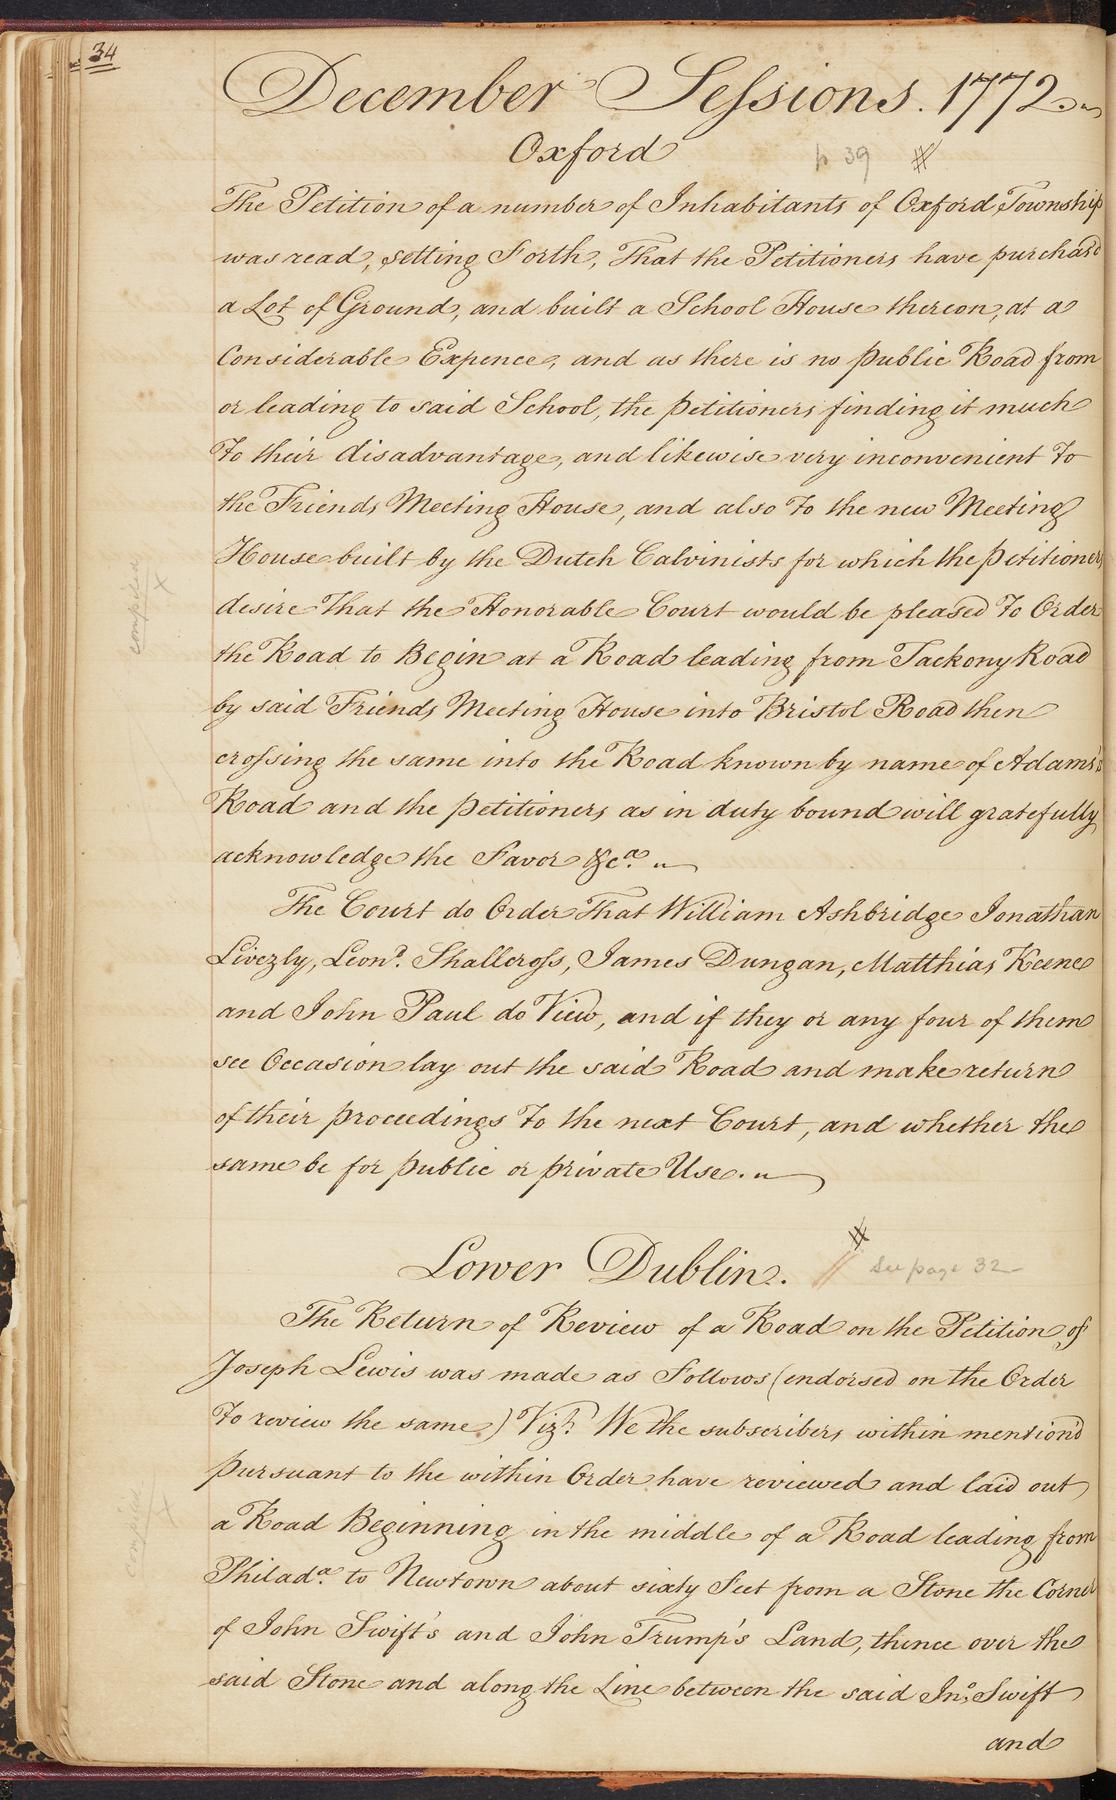 34
December Sessions. 1772.
Oxford
p 39 #
The Petition of a number of Inhabitants of Oxford Township
was read, setting Forth, That the Petitioners have purchas'd
a Lot of Ground, and built a School House thereon, at a
Considerable Expence, and as there is no public Road from
or leading to said School, the petitioners finding it much
To their disadvantage, and likewise very inconvenient To
the Friends Meeting House, and also To the new Meeting
House built by the Dutch Calvinists for which the petitioners
desire That the Honorable Court would be pleased To Order
the Road to Begin at a Road leading from Tackony Road
by said Friends Meeting House into Bristol Road then
crossing the same into the Road known by name of Adams's
Road and the petitioners as in duty bound will gratefully
acknowledge the Favor &ca.
The Court do Order That William Ashbridge Jonathan
Livezly, Leond. Shallcross, James Dungan, Matthias Keene
and John Paul do View, and if they or any four of them
see Occasion lay out the said Road and make return
of their proceedings To the next Court, and whether the
same be for public or private Use.
Lower Dublin. # // See page 32
The Return of Review of a Road on the Petition of
Joseph Lewis was made as Follows (endorsed on the Order
To review the same) Vizt. We the subscribers within mention'd
pursuant to the within Order have reviewed and laid out
a Road Beginning in the middle of a Road leading from
Philada. to Newtown about sixty Feet from a Stone the Corner
of John Swift's and John Trump's Land, thence over the
said Stone and along the Line between the said Jno. Swift
and